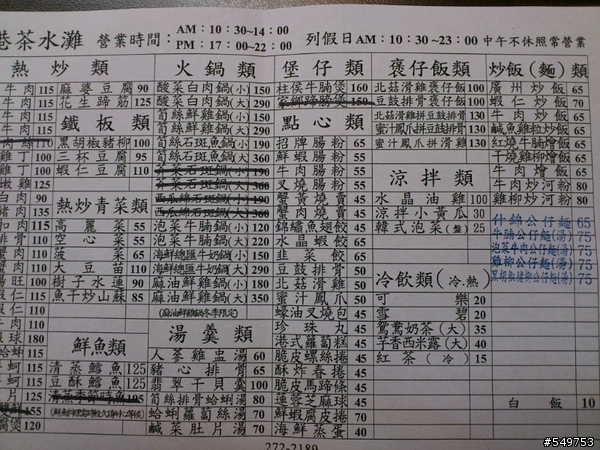 港茶水灘 營業時間： AM：10：30~14：00 列假日AM：10：30~23：00 中午不休照常營業
PM：17：00~22：00
熱炒類
牛肉 115 麻婆豆腐 90
牛肉 115 花生蹄筋 125
鐵板類
肉絲 110 黑胡椒豬柳 100
雞丁 100 三杯豆腐 95
雞丁 100 蝦仁豆腐 110
嫩雞 125
白肉 90
豬肉 135
熱炒青菜類
扣肉 115 高麗菜 55
排骨 110 空心菜 55
蟹肉 110 菠菜 65
蟹肉 110 大豆苗 110
瑚球 180 樹子水蓮 90
蝦仁 115 魚干炒山蘇 85
蝦仁 110
牛肉 110
蝦球 180
鮮魚類
蛤蜊 115 清蒸鱈魚 125
牛蚵 115 豆酥鱈魚 125
生蚵 115 清蒸季節時魚 195
魚片 125
腐煲 120
火鍋類
酸菜白肉鍋(小) 150
酸菜白肉鍋(大) 290
筍絲鮮雞鍋(小) 150
筍絲鮮雞鍋(大) 290
筍絲石斑魚鍋(小) 190
筍絲石斑魚鍋(大) 360
西瓜綿石斑鍋(小) 190
西瓜綿石斑鍋(大) 360
泡菜牛腩鍋(小) 120
泡菜牛腩鍋(大) 220
海鮮總匯牛奶鍋(小) 150
海鮮總匯牛奶鍋(大) 290
麻油鮮雞鍋(小) 180
麻油鮮雞鍋(大) 350
(麻油鮮雞鍋冬季限定)
湯羹類
人蔘雞虫湯 60
豬心排骨 65
翡翠干貝羹 100
筍絲排骨蛤蜊湯 80
蛤蜊蘿蔔絲湯 70
鹹菜肚片湯 70
堡仔類
柱侯牛腩煲 160
家鄉蹄膀煲 150
點心類
招牌腸粉 65
鮮蝦腸粉 55
牛肉腸粉 55
叉燒腸粉 55
蟹黃燒賣 45
蟹肉燒賣 45
錦鏽魚翅餃 45
水晶蝦餃 65
韭菜餃 65
豆豉鼓排骨 50
蜜汁鳳爪 50
蠔油叉燒包 45
珍珠丸 45
港式蘿蔔糕 45
脆皮螺絲捲 45
酥炸春捲 45
脆皮馬蹄條 45
蓮蓉芝麻球 45
鮮蝦腐皮捲 70
海鮮蒸蛋 40
褒仔飯類
北菇滑雞褒仔飯 100
豆豉排骨褒仔飯 100
北菇滑雞拼豆豉排骨 130
蜜汁鳳爪拼豆豉排骨 130
蜜汁鳳爪拼滑雞 130
涼拌類
水晶油雞 100
涼拌小黃瓜 30
韓式泡菜(盤) 25
冷飲類(冷.熱)
可樂 20
雪碧 20
鴛鴦奶茶(大) 35
芋香西米露(大) 40
紅茶(冷) 15
炒飯(麵)類
廣州炒飯 65
蝦仁炒飯 70
牛肉炒飯 65
鹹魚雞拉炒飯 65
紅燒牛腩燴飯 65
干燒雞柳燴飯 65
牛肉燴飯 65
牛肉炒河粉 80
雞柳炒河粉 80
什錦公仔麵 65
牛腩公仔麵(湯) 75
泡菜牛肉公仔麵(湯) 75
雞柳公仔麵(湯) 75
黑胡椒豬柳公仔麵 75
白飯 10
272-2189
#549753